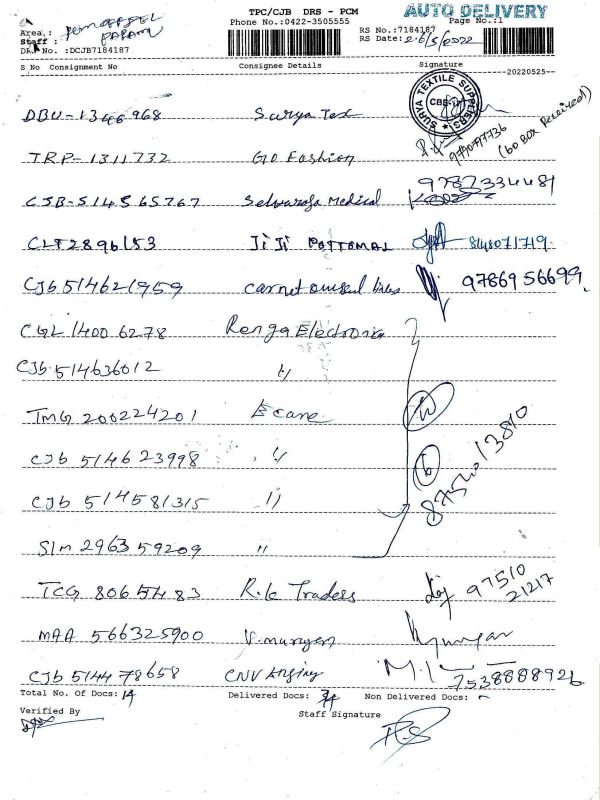 TPC/CJB DRS - PCM
AUTO DELIVERY
Phone No.:0422-3505555
Page No.:1
Area :
Staff :
RS No.:7184187
RS Date:
DRS No. :DCJB7184187
S No Consignment No Consignee Details Signature
--20220525--
SURYA TEXTILE SUPPLIERS
CBE-1
DBU-1346968 Surya Tex
9790797736
(60 Box Received)
TRP-1311732 Go Fashion
CJB-514565767 Selvaraja Medical 9787334481
CLT2896153 JiJi POTTOMAL 8148071719
CJb 514621959 9786956699
CGL 1400 6278 Renga Electronic
CJb 514636012 "
TMG 200224201 Ecare
CJb 514623998 "
8754013810
CJb 514581315 "
SLM 296359209 "
TCG 8065483 R.K Traders 97510 21217
MAA 566325900 V.murugan
CJb 514478658 7538888926
Total No. Of Docs: 14 Delivered Docs: Non Delivered Docs: -
Verified By Staff Signature